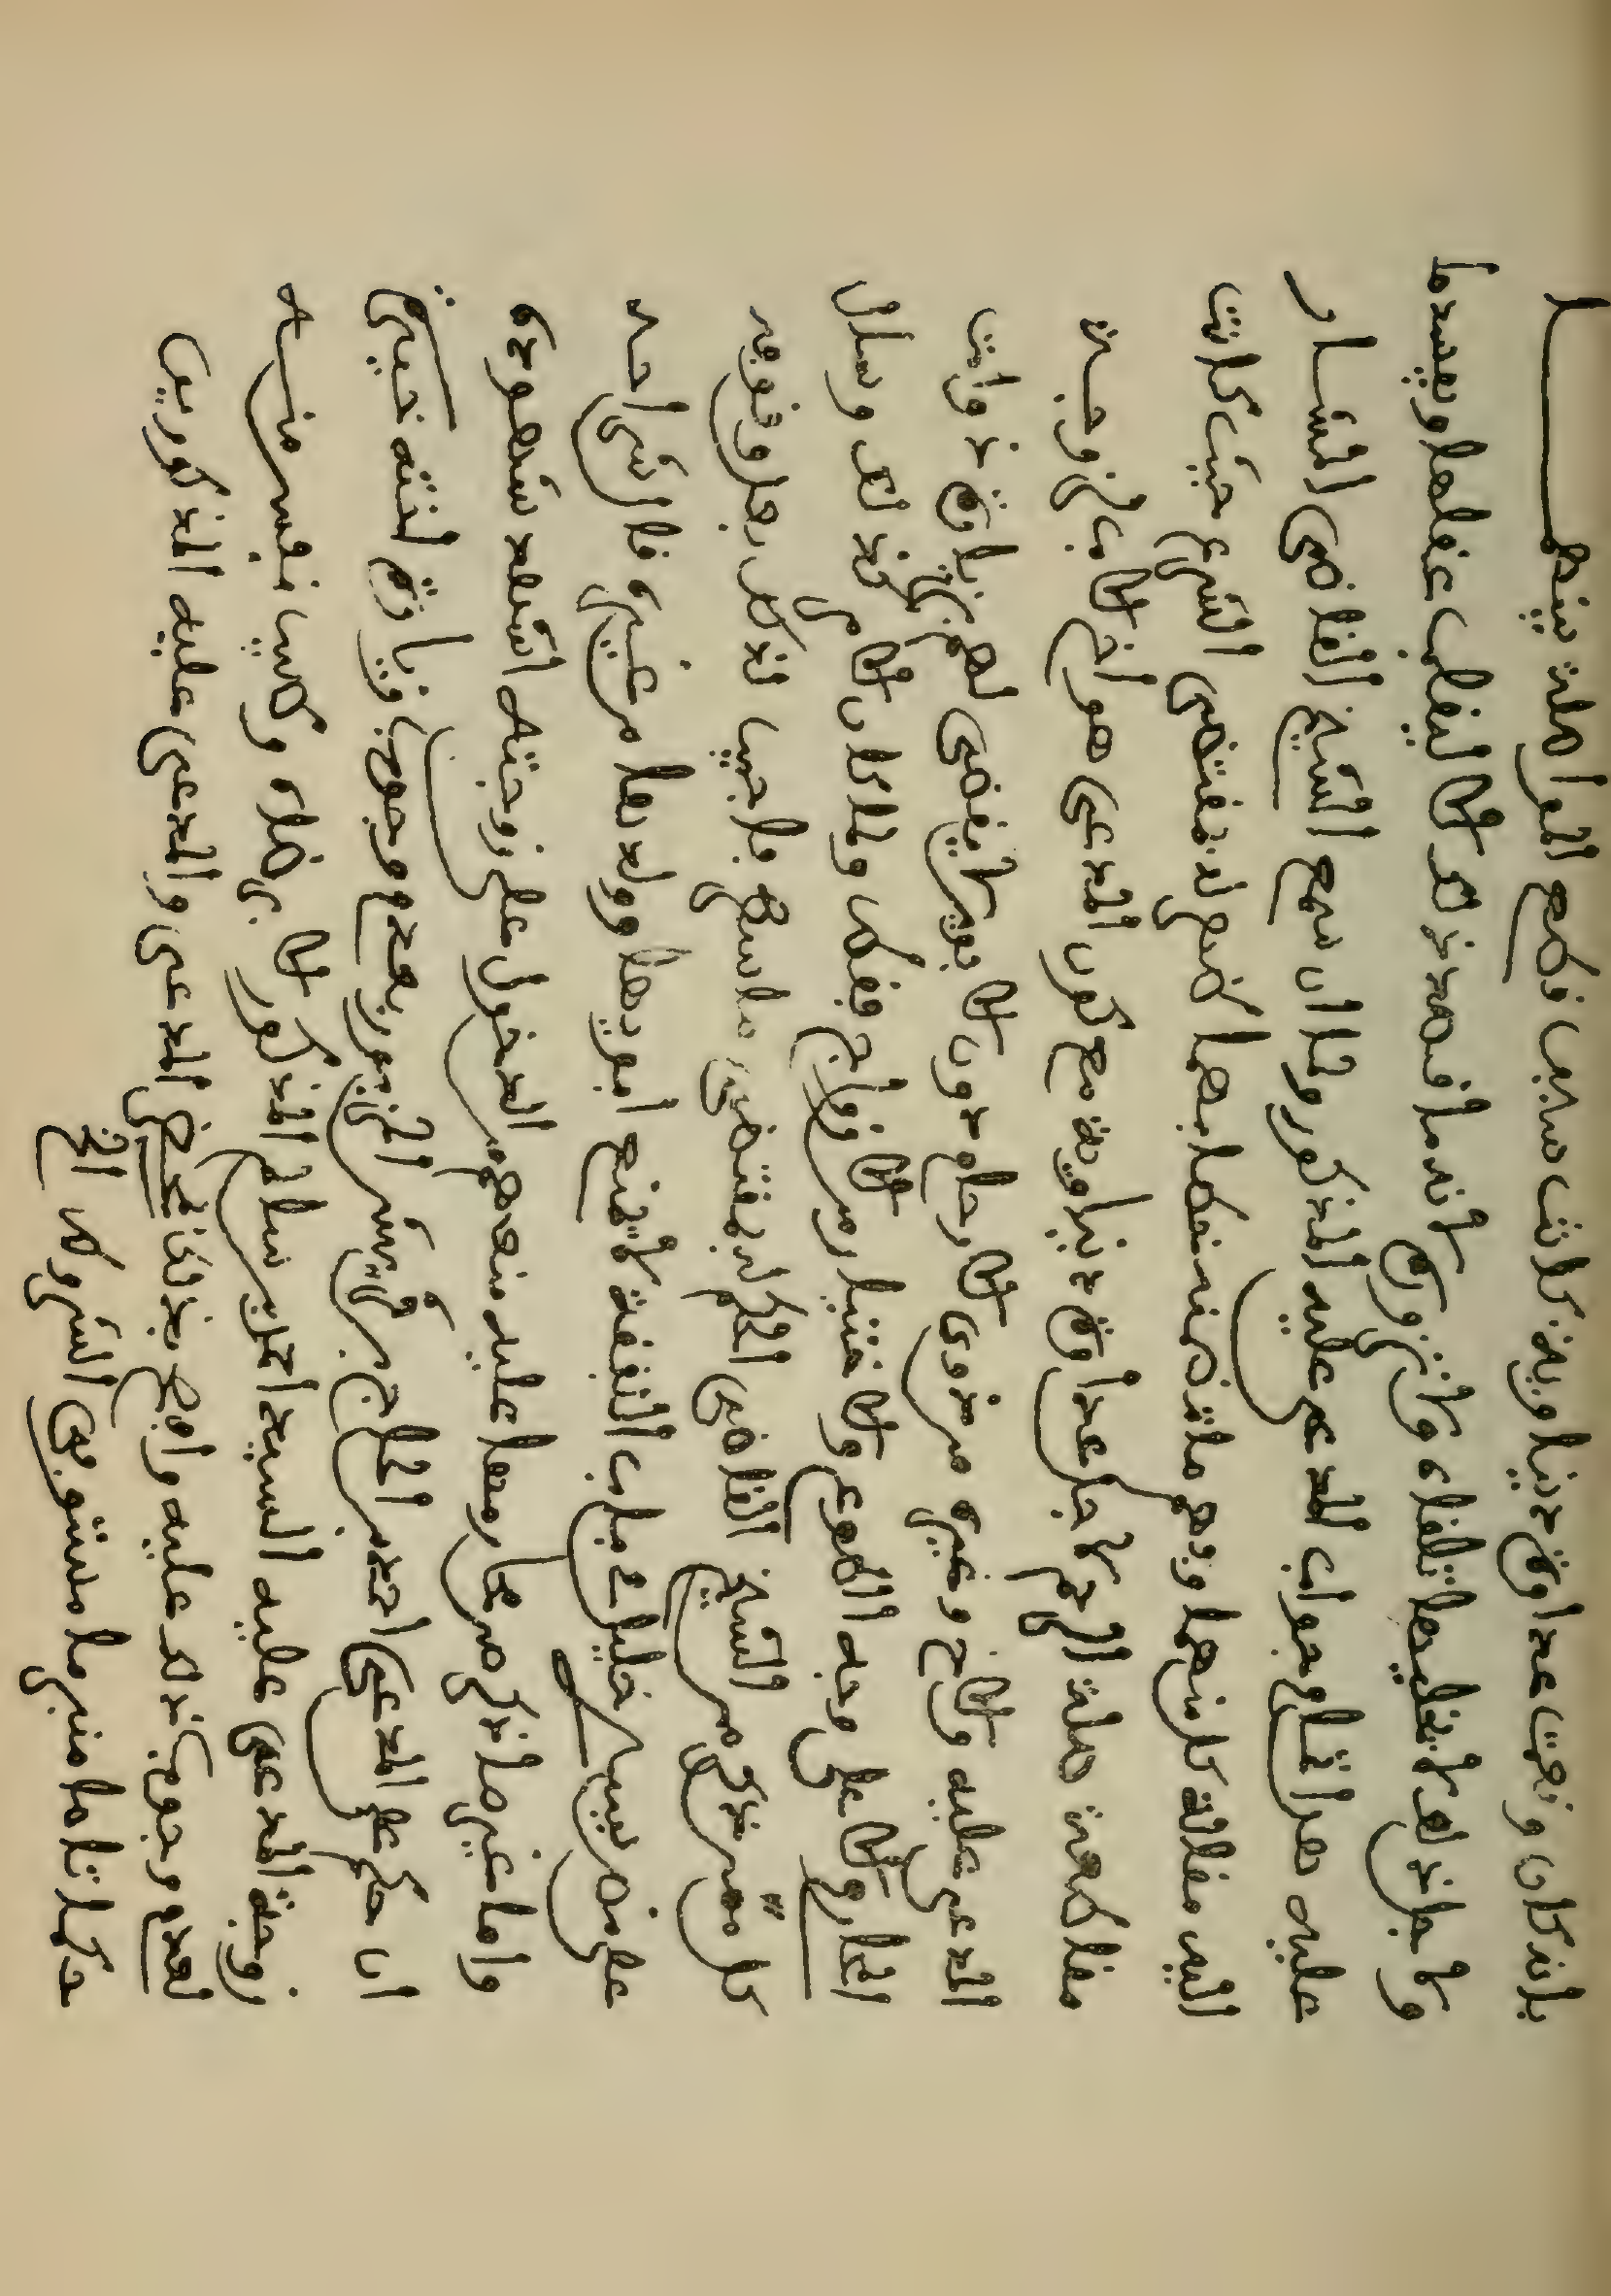 بانه كان وقعت عداوة دنياوية كانت سبب فى قطع المواصلة بينهما
ولاجل ذلك لا يخليها تلقاه ولا تزوره لانه ما قصد ذلك الا ليقلب عقلها ويفسدها
عليه هذا تمام جواب المدعى عليه المذكور ولما ان سمع الشيخ القاضى المشار
اليه مقالة كل منهما وفهم ما تضمنه نطقا بهما له بمقتضى الشرع حيث كانت
مقاطعة صلة الرحم لاجل عداوة دنياوية مع كون المدعى هو اخ الاب لزوجة
المدعى عليه والاخ وغيره من ذوى الارحام دون الابوين لا يقضى لهم بزيارة ذوات
المحارم الا على وجه الطوع والاختيار من الازواج فقط ولما كان الامر كذلك وسال
كل من ذكر من الشيخ القاضى الحكم له بمقتضى ما سطر فاجيب لذلك
على نص سيدى خليل فى باب النفقة لا تمنع ابويها وولدها من غيره قال الشراح
واما غير ما ذكر من محارمها عليه منعهم من الدخول على زوجته اشهد شهوده
ان حكم على المدعى احمد بن الحاج بن المزبور بعدم وجوب زيارة لبنته خيرة
زوجة المدعى عليه السيد احمد بن سالم المذكور الا برضاه وطيب نفس منه
لعدم وجوب ذلك عليه وامر بذلك بمحضر المدعى والمدعى عليه المذكورين
حكما تاما منبرما مستوفى الشروط الخ